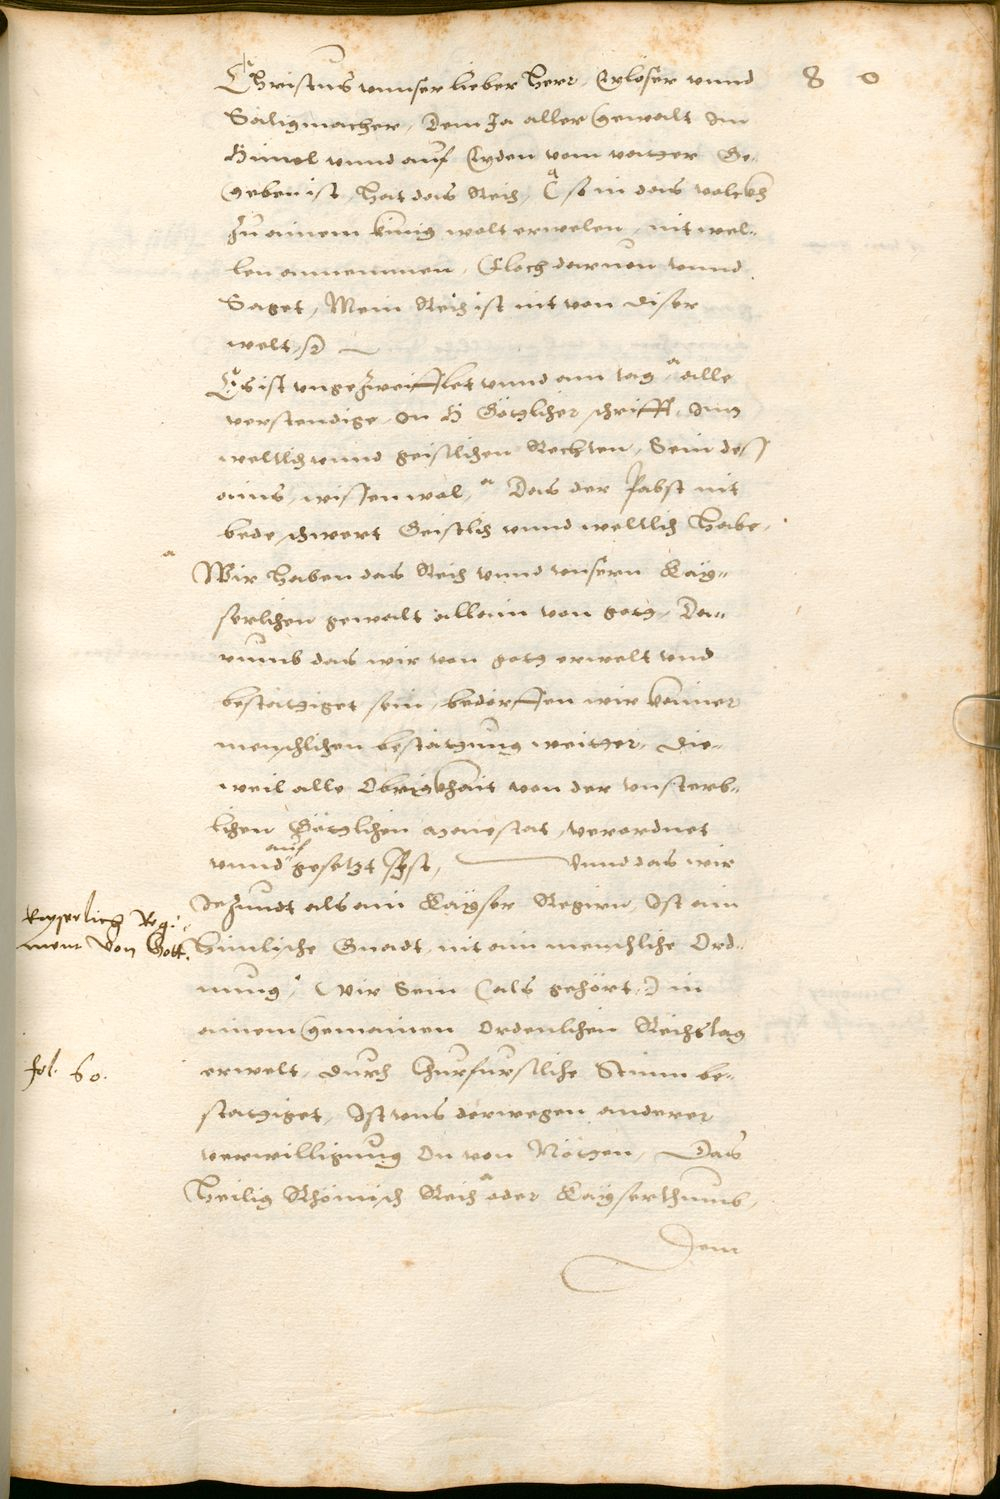 80
Christus vnnser lieber Herr, Erlöser vnnd
Säligmacher, Dem Ja aller gewalt Im
Himel vnnd auf Erden vom vatter Ge-
geben ist, Hat das Reich, (so in das volckh
zu ainem künig wolt erwelen, nit wel-
len annemmen, Floch daruon vnnd
Saget, Mein Reich ist nit von diser
welt,
Es ist vngezweiflet vnnd am tag, alle
verstendige In H Götlicher schrifft, Inn
weltlich vnnd geistlichen Rechten, Sein deß
ains, wissen wol, Das der Pabst nit
bede schwert Geistlich vnnd weltlich Habe,
Wir Haben das Reich vnnd vnsern Kay-
serlichen gewalt allain von gott, Da-
rumb das wir von gott erwelt vnd
bestättiget sein, bedörffen wir kainer
menschlichen bestättung weitter, Die-
weil alle Obrigkhait von der vnsterb-
lichen Götlichen Maiestat, verordnet
vnnd auf gesetzt ist, Vnnd das wir
Jezundt als ain Kayser Regirn, Ist ain
Kayserlich Regi-
ment Von Gott.
Himlische Gnadt, nit ain menschliche Ord-
nung, Wir Sein (als gehört) in
ainem gemainen Ordenlichen Reichstag
fol. 60.
erwelt, durch Churfürstliche Stimm be-
stättiget, Ist vns derwegen anderer
verwilligung On von Nötten, Das
Heilig Rhömisch Reich oder Kayserthumb,
Dem